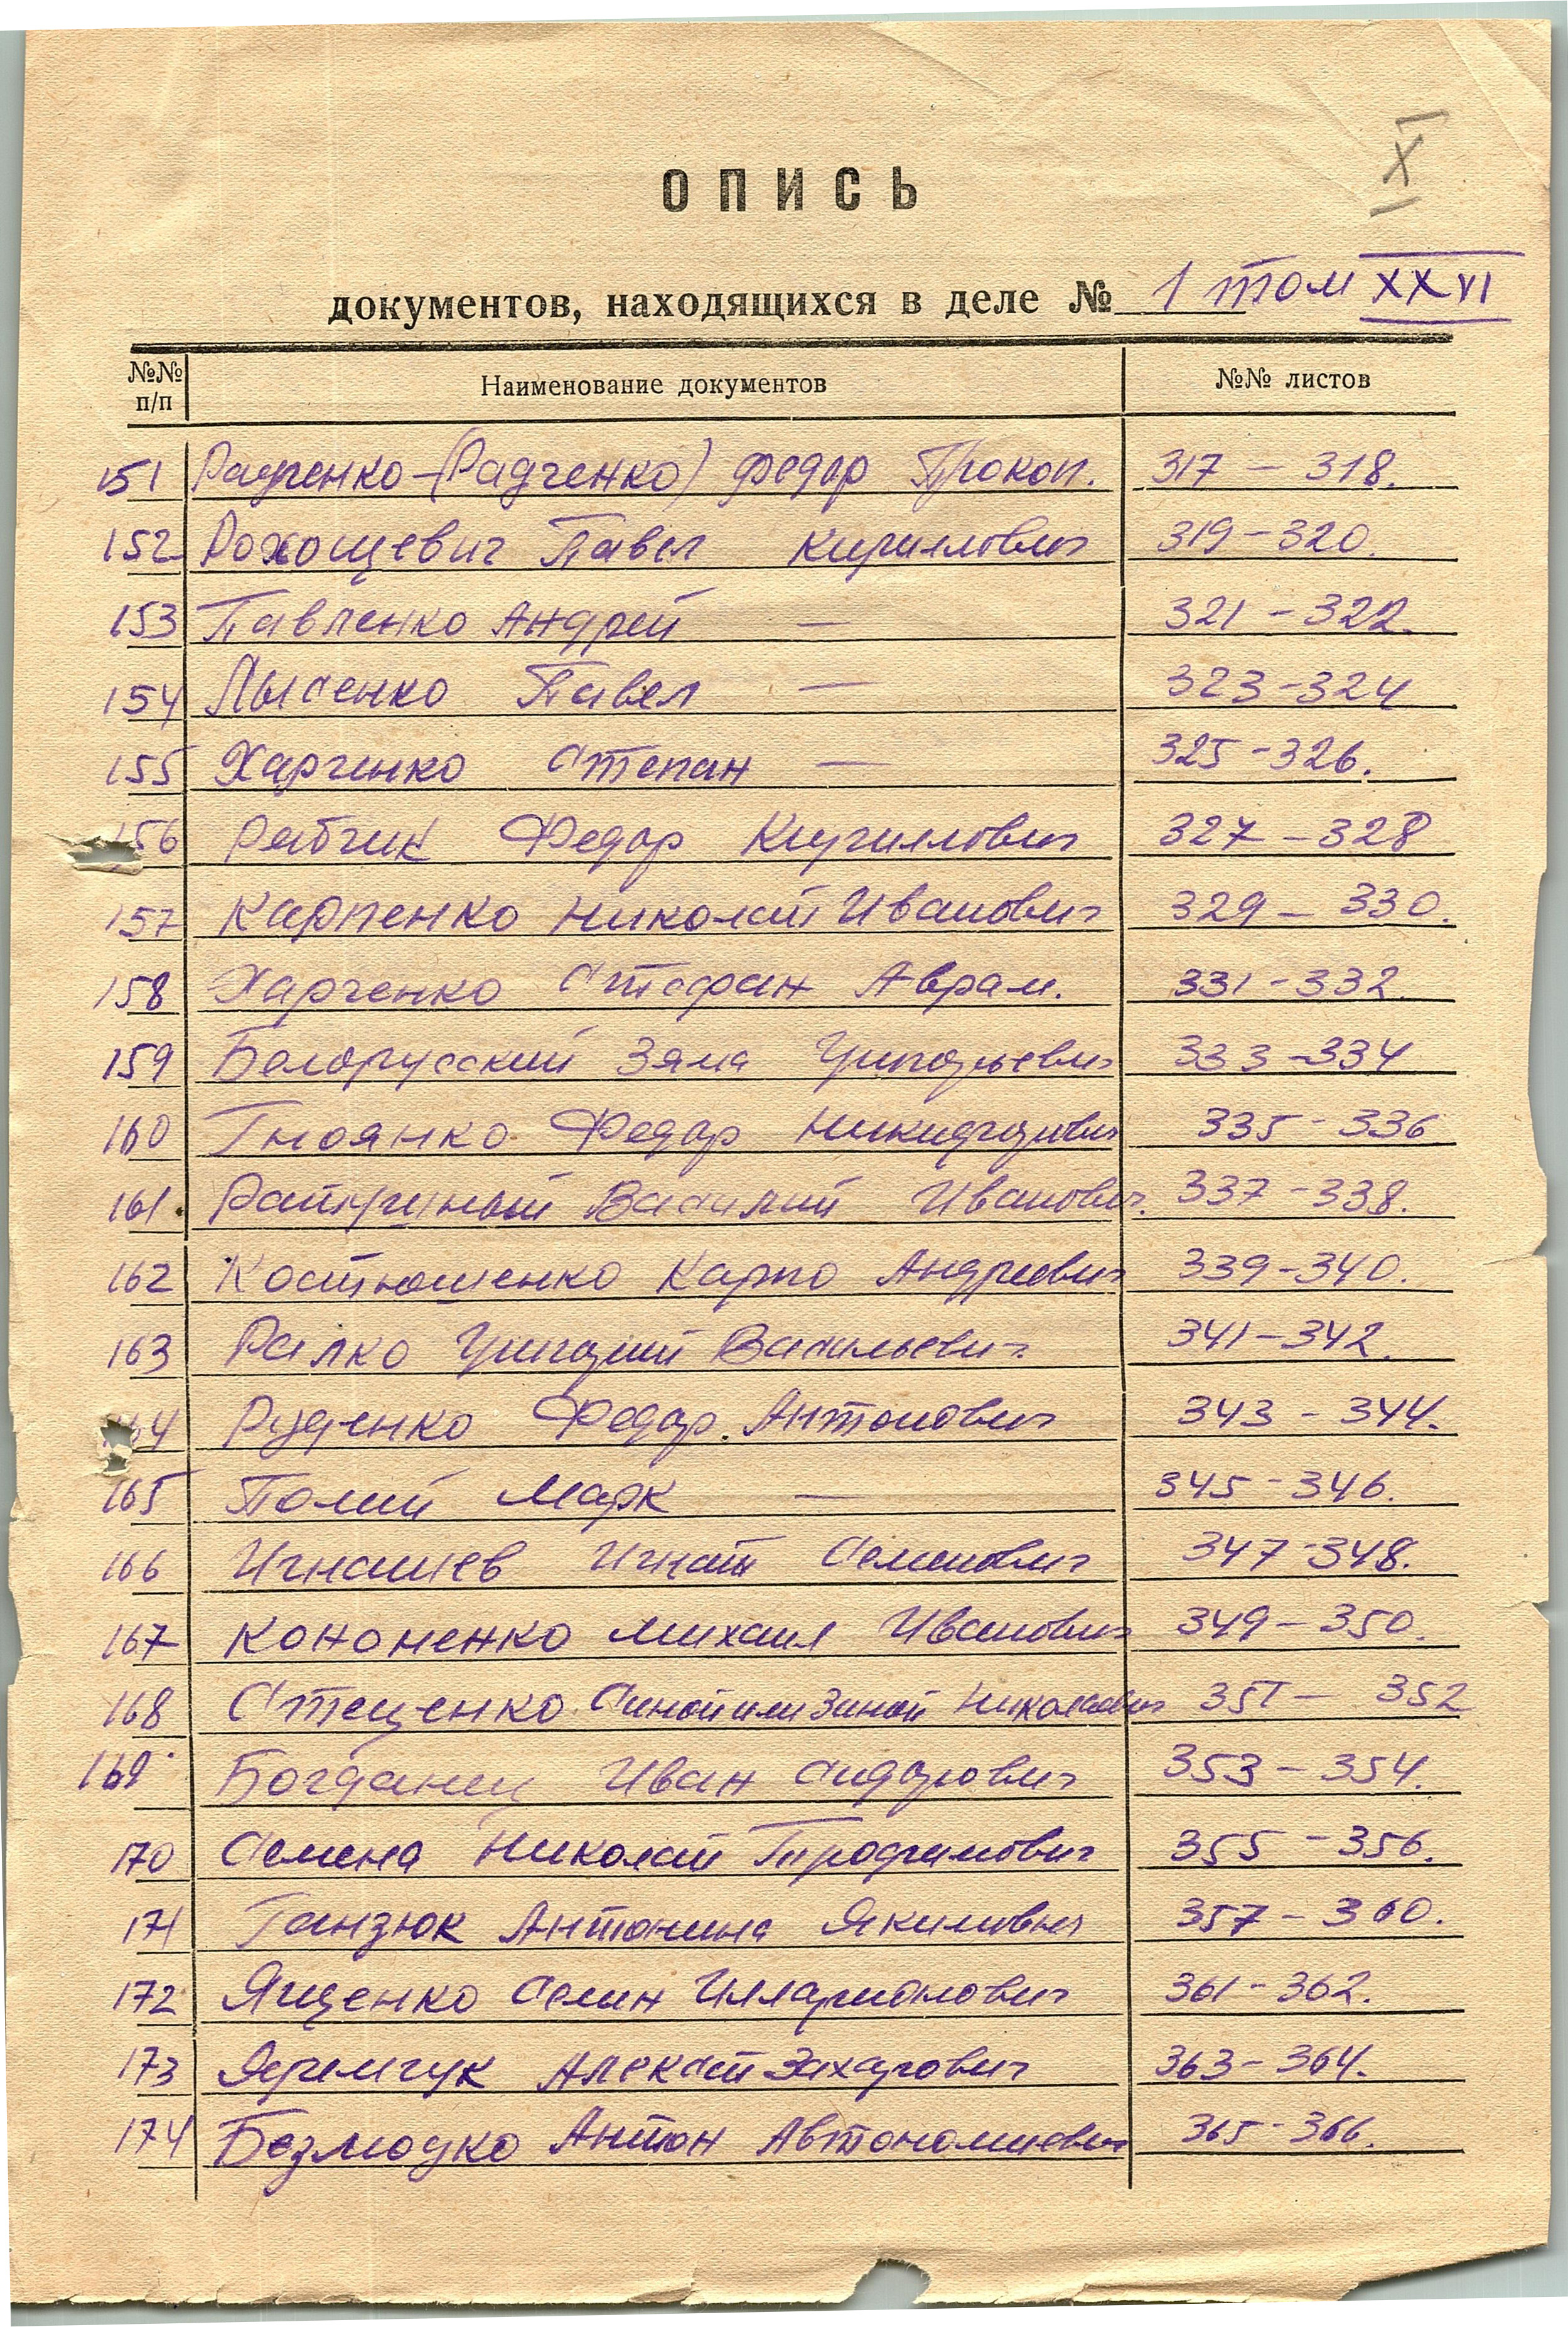 X
ОПИСЬ
документов, находящихся в деле № 1 том XXVI
№№ п/п Наименование документов №№ листов
151 Радченко-(Радченко) Федор Прокоп. 317 – 318.
152 Рохощевич Павел Кириллович 319-320.
153 Павленко Андрей — 321-322.
154 Лысенко Павел — 323-324
155 Харченко Степан — 325-326.
156 Рабчик Федор Кириллович 327-328
157 Карпенко Николай Иванович 329-330.
158 Харченко Стефан Аврам. 331-332.
159 Белорусский Зяма Григорьевич 333-334
160 Гноянко Федор Никифорович 335-336
161. Василий Иванович. 337-338.
162 Костюшенко Карпо Андреевич 339-340.
163 Ралко Григорий Васильевич 341-342.
164 Руденко Федор Антонович 343-344.
165 Полий Марк — 345-346.
166 Игнашев Игнат Семенович 347-348.
167 Кононенко Михаил Иванович 349-350.
168 Стеценко Синой или Зиной Николаевич 351 – 352
169 Богданец Иван Сидорович 353-354.
170 Семена Николай Трофимович 355-356.
171 Ганзюк Антонина Якимовна 357-360.
172 Ященко Семен Илларионович 361-362.
173 Яремчук Алексей Захарович 363-364.
174 Безмодко Антон Автономиевич 365-366.